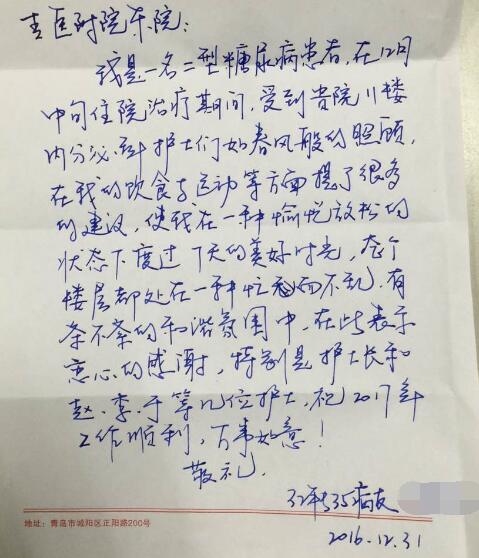 青医附院东院：
我是一名二型糖尿病患者，在12月
中旬住院治疗期间，受到贵院11楼
内分泌科护士们如春风般的照顾，
在我的饮食与运动等方面提了很多
的建议，使我在一种愉悦放松的
状态下度过7天的美好时光，整个
楼层都处在一种忙而不乱，有
条不紊的和谐氛围中，在此表示
衷心的感谢，特别是护士长和
赵、李、于等几位护士，祝2017年
工作顺利，万事如意！
敬礼
病友
2016.12.31
地址：青岛市城阳区正阳路200号